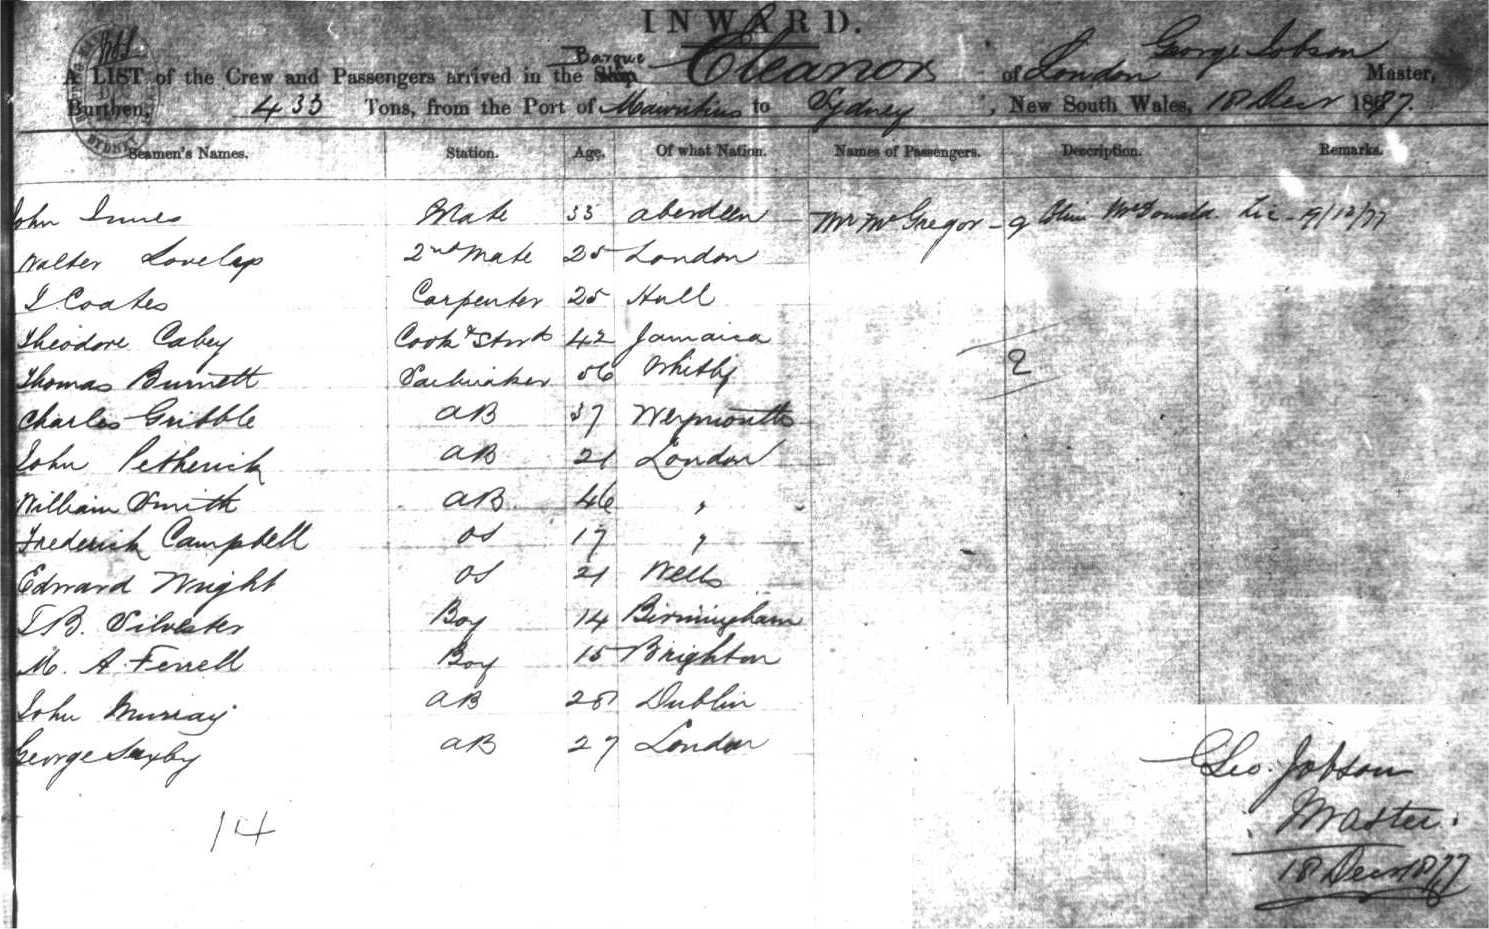 INWARD.
A LIST of the Crew and Passengers arrived in the Ship Barque Eleanor of London George Jobson Master,
Burthen, 433 Tons, from the Port of Mauritius to Sydney, New South Wales, 18 Decr 1877.
Seamen's Names. Station. Age. Of what Nation. Names of Passengers. Description. Remarks.
John Innes Mate 33 Aberdeen Mr McGregor - 9 McDonald. Lic - 9/12/77
Walter Lovelap 2nd Mate 25 London
Coates Carpenter 25 Hull
Theodore Cabey Cook & Stwd 42 Jamaica
2
Thomas Burnett Sailmaker 56 Whitby
Charles Gribble AB 37 Weymouth
John Petherick AB 21 London
William Smith AB 46 "
Frederick Campbell OS 17 "
Edward Wright OS 21 Wells
T B. Silvester Boy 14 Birmingham
M. A. Ferrell Boy 15 Brighton
John Murray AB 28 Dublin
George Saxby AB 27 London
14
Geo. Jobson
Master.
18 Decr 1877